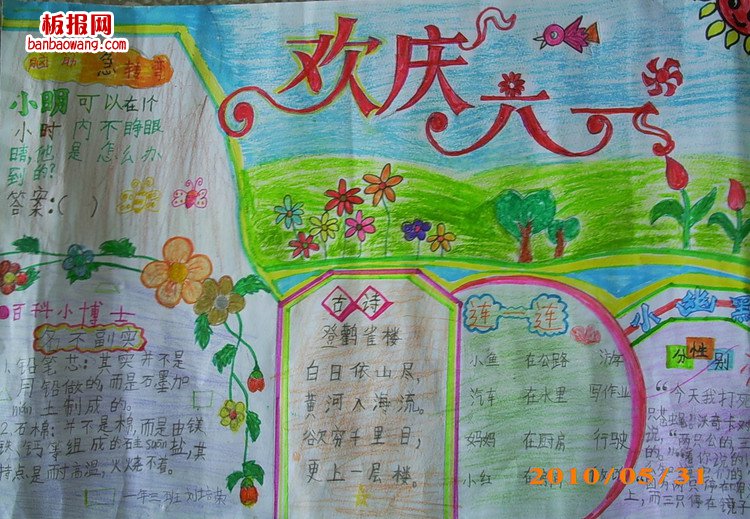 板报网
banbaowang.com
欢庆六一
脑筋急转弯
小明可以在1个
小时内不睁眼
睛,他是怎么办
到的?
答案:( )
百科小博士
名不副实
铅笔芯:其实并不是
用铅做的,而是石墨加
nián土制成的。
2.石棉:并不是棉,而是由镁
铁、钙等组成的硅suān盐,其
特点是而耐高温,火烧不着。
一年三班
古诗
登鹳雀楼
白日依山尽,
黄河入海流。
欲穷千里目,
更上一层楼。
连一连
小鱼 在公路 游
汽车 在水里 写作业
妈妈 在厨房 行驶
小红 在
小幽默
分性别
“今天我打死
只苍蝇
“两只公的三
说的。”
上,而三只停在镜子
2010/05/31